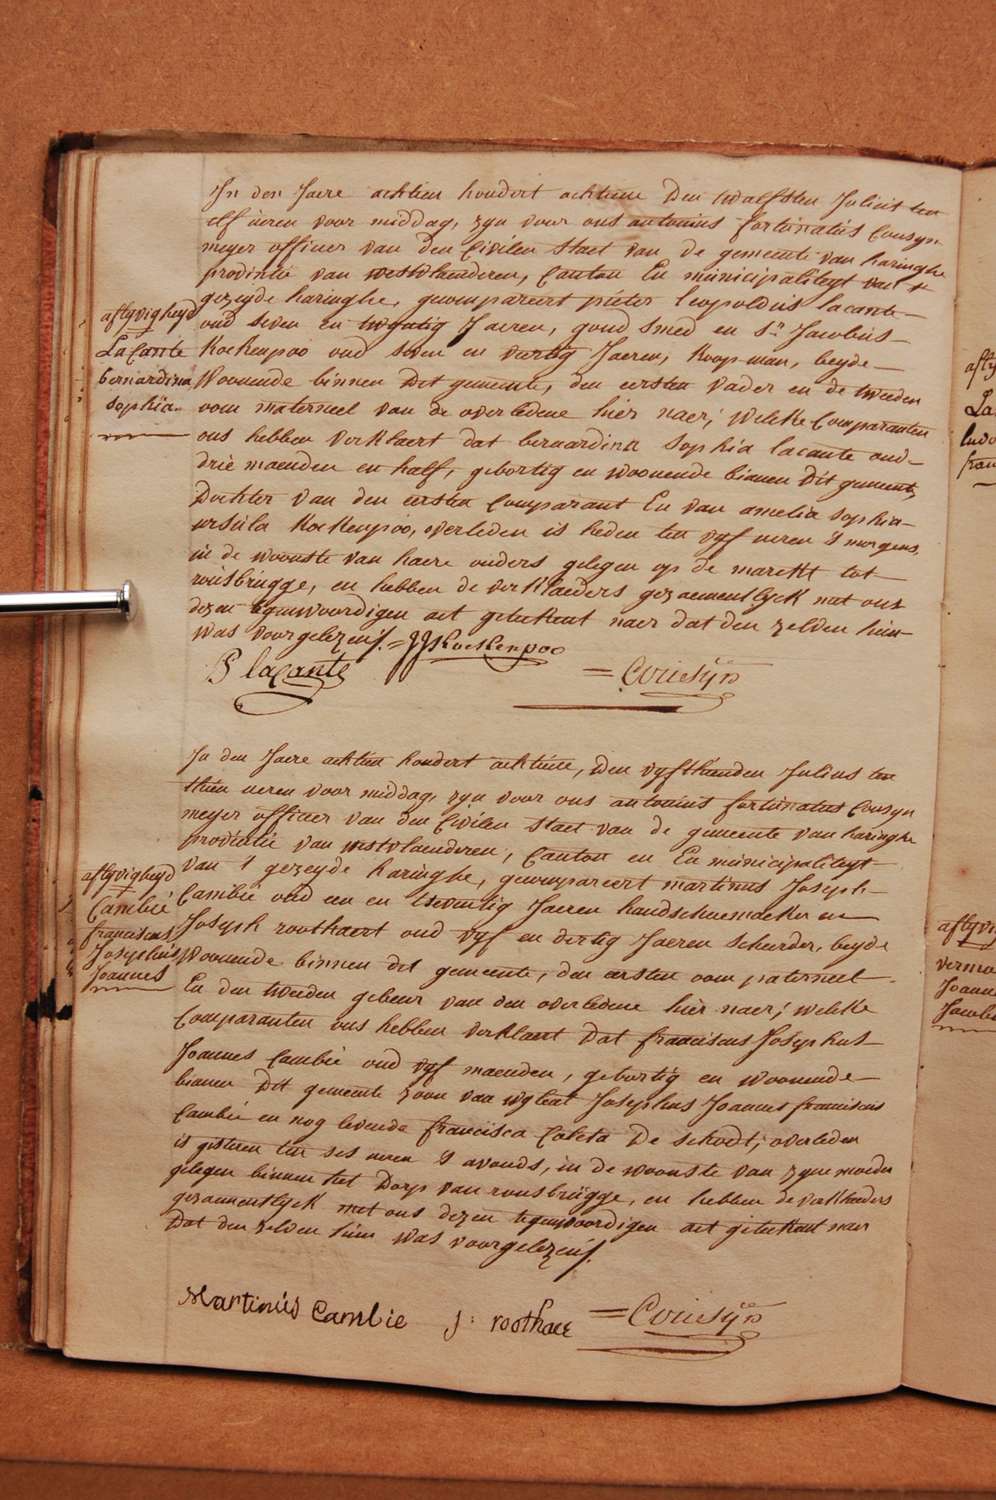 In den Jaere achtien hondert achtiene den twalfsten Julius ten
elf ueren voor middag, zyn voor ons antonius fortunatus Cousyn
meyer officier van den Civilen staet van de gemeente van haringhe
provintie van westvlaenderen, Canton En municipaliteyt van 't
gezeyde haringhe, gecompareert pieter leopoldus lacante
oud seven en twyntig Jaeren, goud smed en sr. Jacobus
Kockenpoo oud seven en vertig Jaeren, koopman, beyde
Woonende binnen dit gemeente, den eersten vader en de tweeden
oom materneel van de overledene hier naer; welcke Comparanten
ons hebben verklaert dat bernardina sophia lacante oud
drie maenden en half, gebortig en woonende binnen dit gemeente
Dochter van den eersten Comparant En van amelia sophia
ursula Kockenpoo, overleden is heden ten vyf ueren 's morgens
in de woonste van haere ouders gelegen op de marckt tot
rousbrugge, en hebben de verklaeders gezaementlyck met ons
dezen tegenwoordigen act geteekent naer dat den zelden hun
was voorgelezen/. = JJ Kockenpoo
P lacante = Cousyn
aflyvigheyd
LaCante
bernardina
sophia
In den Jaere achtien hondert achtiene, den vyfthienden Julius ten
thien ueren voor middag, zyn voor ons antonius fortunatus Cousyn
meyer officier van den Civilen staet van de gemeente van haringhe
provintie van westvlaenderen, Canton en En municipaliteyt
van 't gezeyde haringhe, gecompareert martinus Joseph
Cambié oud een en tseventig Jaeren handschoemaeker en
Joseph roothaert oud vyf en dertig Jaeren scheerder, beyde
Woonende binnen dit gemeente, den eersten oom paterneel
En den tweeden gebeur van den overledene hier naer; welcke
Comparanten ons hebben verklaert dat franciscus Josephus
Joannes Cambié oud vyf maenden, gebortig en woonende
binnen dit gemeente zoon van wylent Josephus Joannes franciscus
Cambié en nog levende francisca Coleta De schodt; overleden
is gisteren ten ses ueren 's avonds, in de woonste van zyne moeder
gelegen binnen het dorp van rousbrugge, en hebben de verklaeders
gezaementlyck met ons dezen tegenwoordigen act geteekent naer
Dat den zelden hun was voorgelezen/.
Martinus Cambie J: roothaer = Cousyn
aflyvigheyd
Cambié
franciscus
Josephus
Joannes
La
Joanne
Jacobu